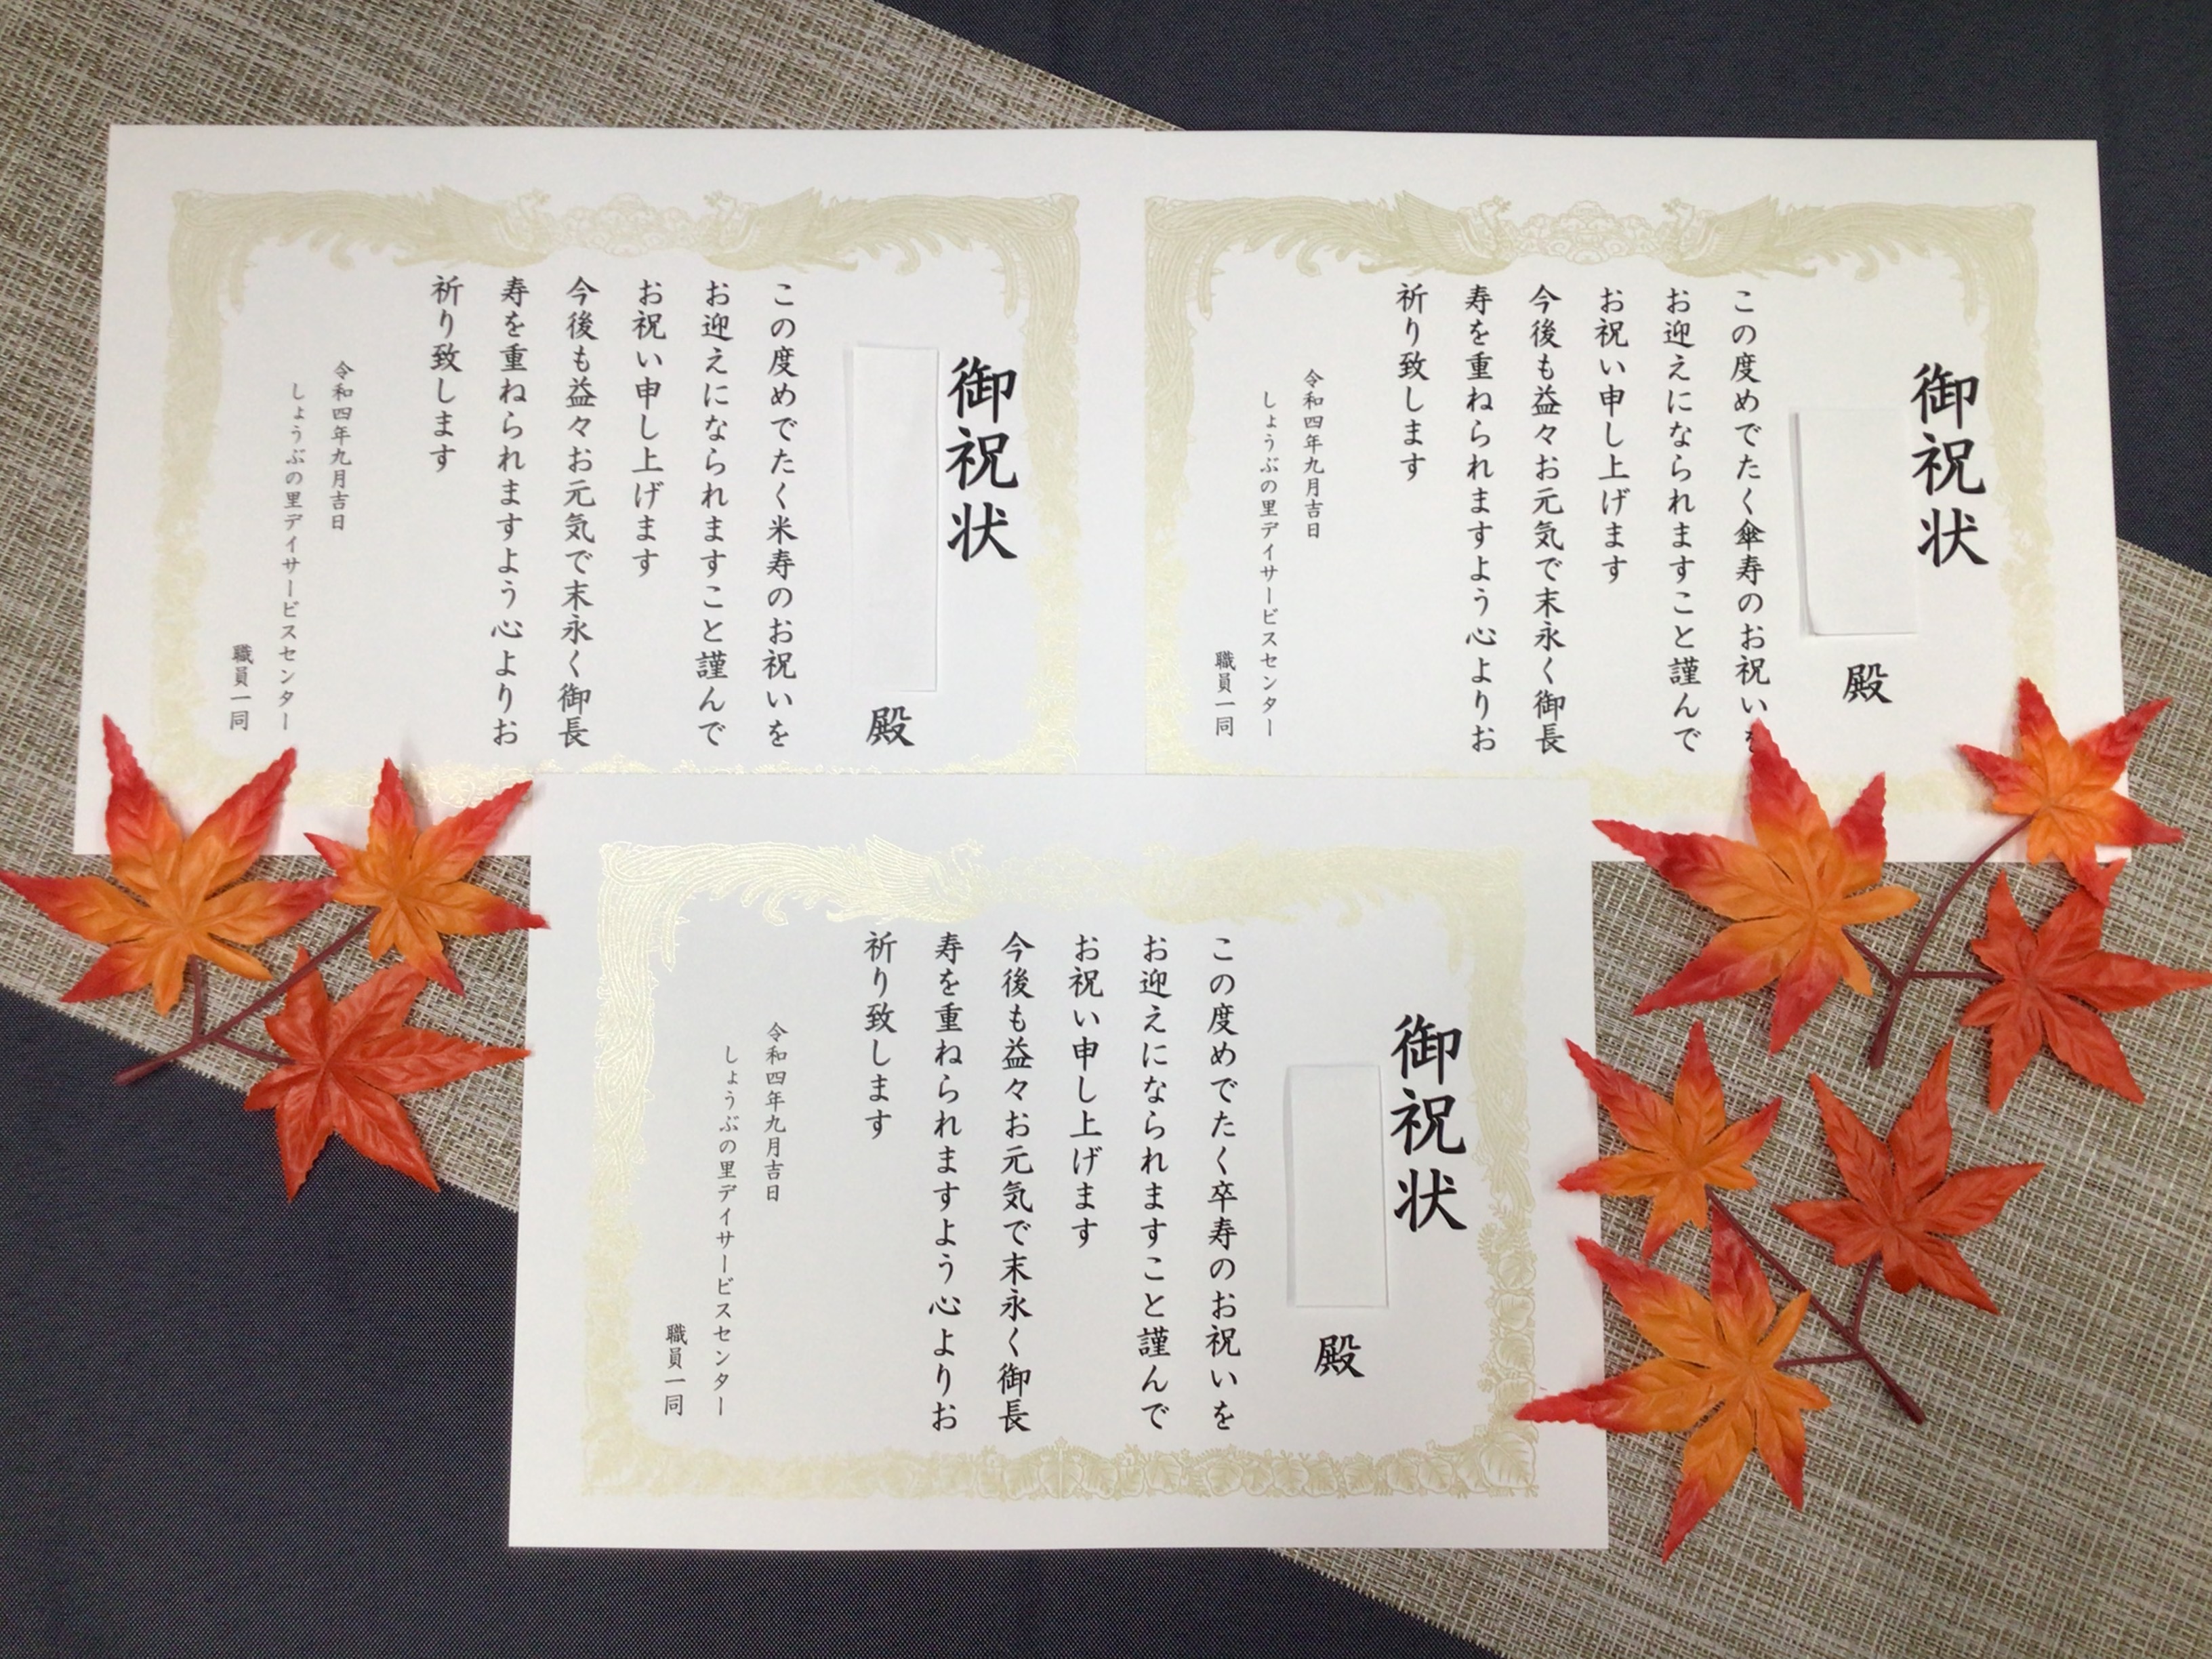 御祝状
殿
この度めでたく米寿のお祝いを
お迎えになられますこと謹んで
お祝い申し上げます
今後も益々お元気で末永く御長
寿を重ねられますよう心よりお
祈り致します
令和四年九月吉日
しょうぶの里デイサービスセンター
職員一同
御祝状
殿
この度めでたく傘寿のお祝いを
お迎えになられますこと謹んで
お祝い申し上げます
今後も益々お元気で末永く御長
寿を重ねられますよう心よりお
祈り致します
令和四年九月吉日
しょうぶの里デイサービスセンター
職員一同
御祝状
殿
この度めでたく卒寿のお祝いを
お迎えになられますこと謹んで
お祝い申し上げます
今後も益々お元気で末永く御長
寿を重ねられますよう心よりお
祈り致します
令和四年九月吉日
しょうぶの里デイサービスセンター
職員一同